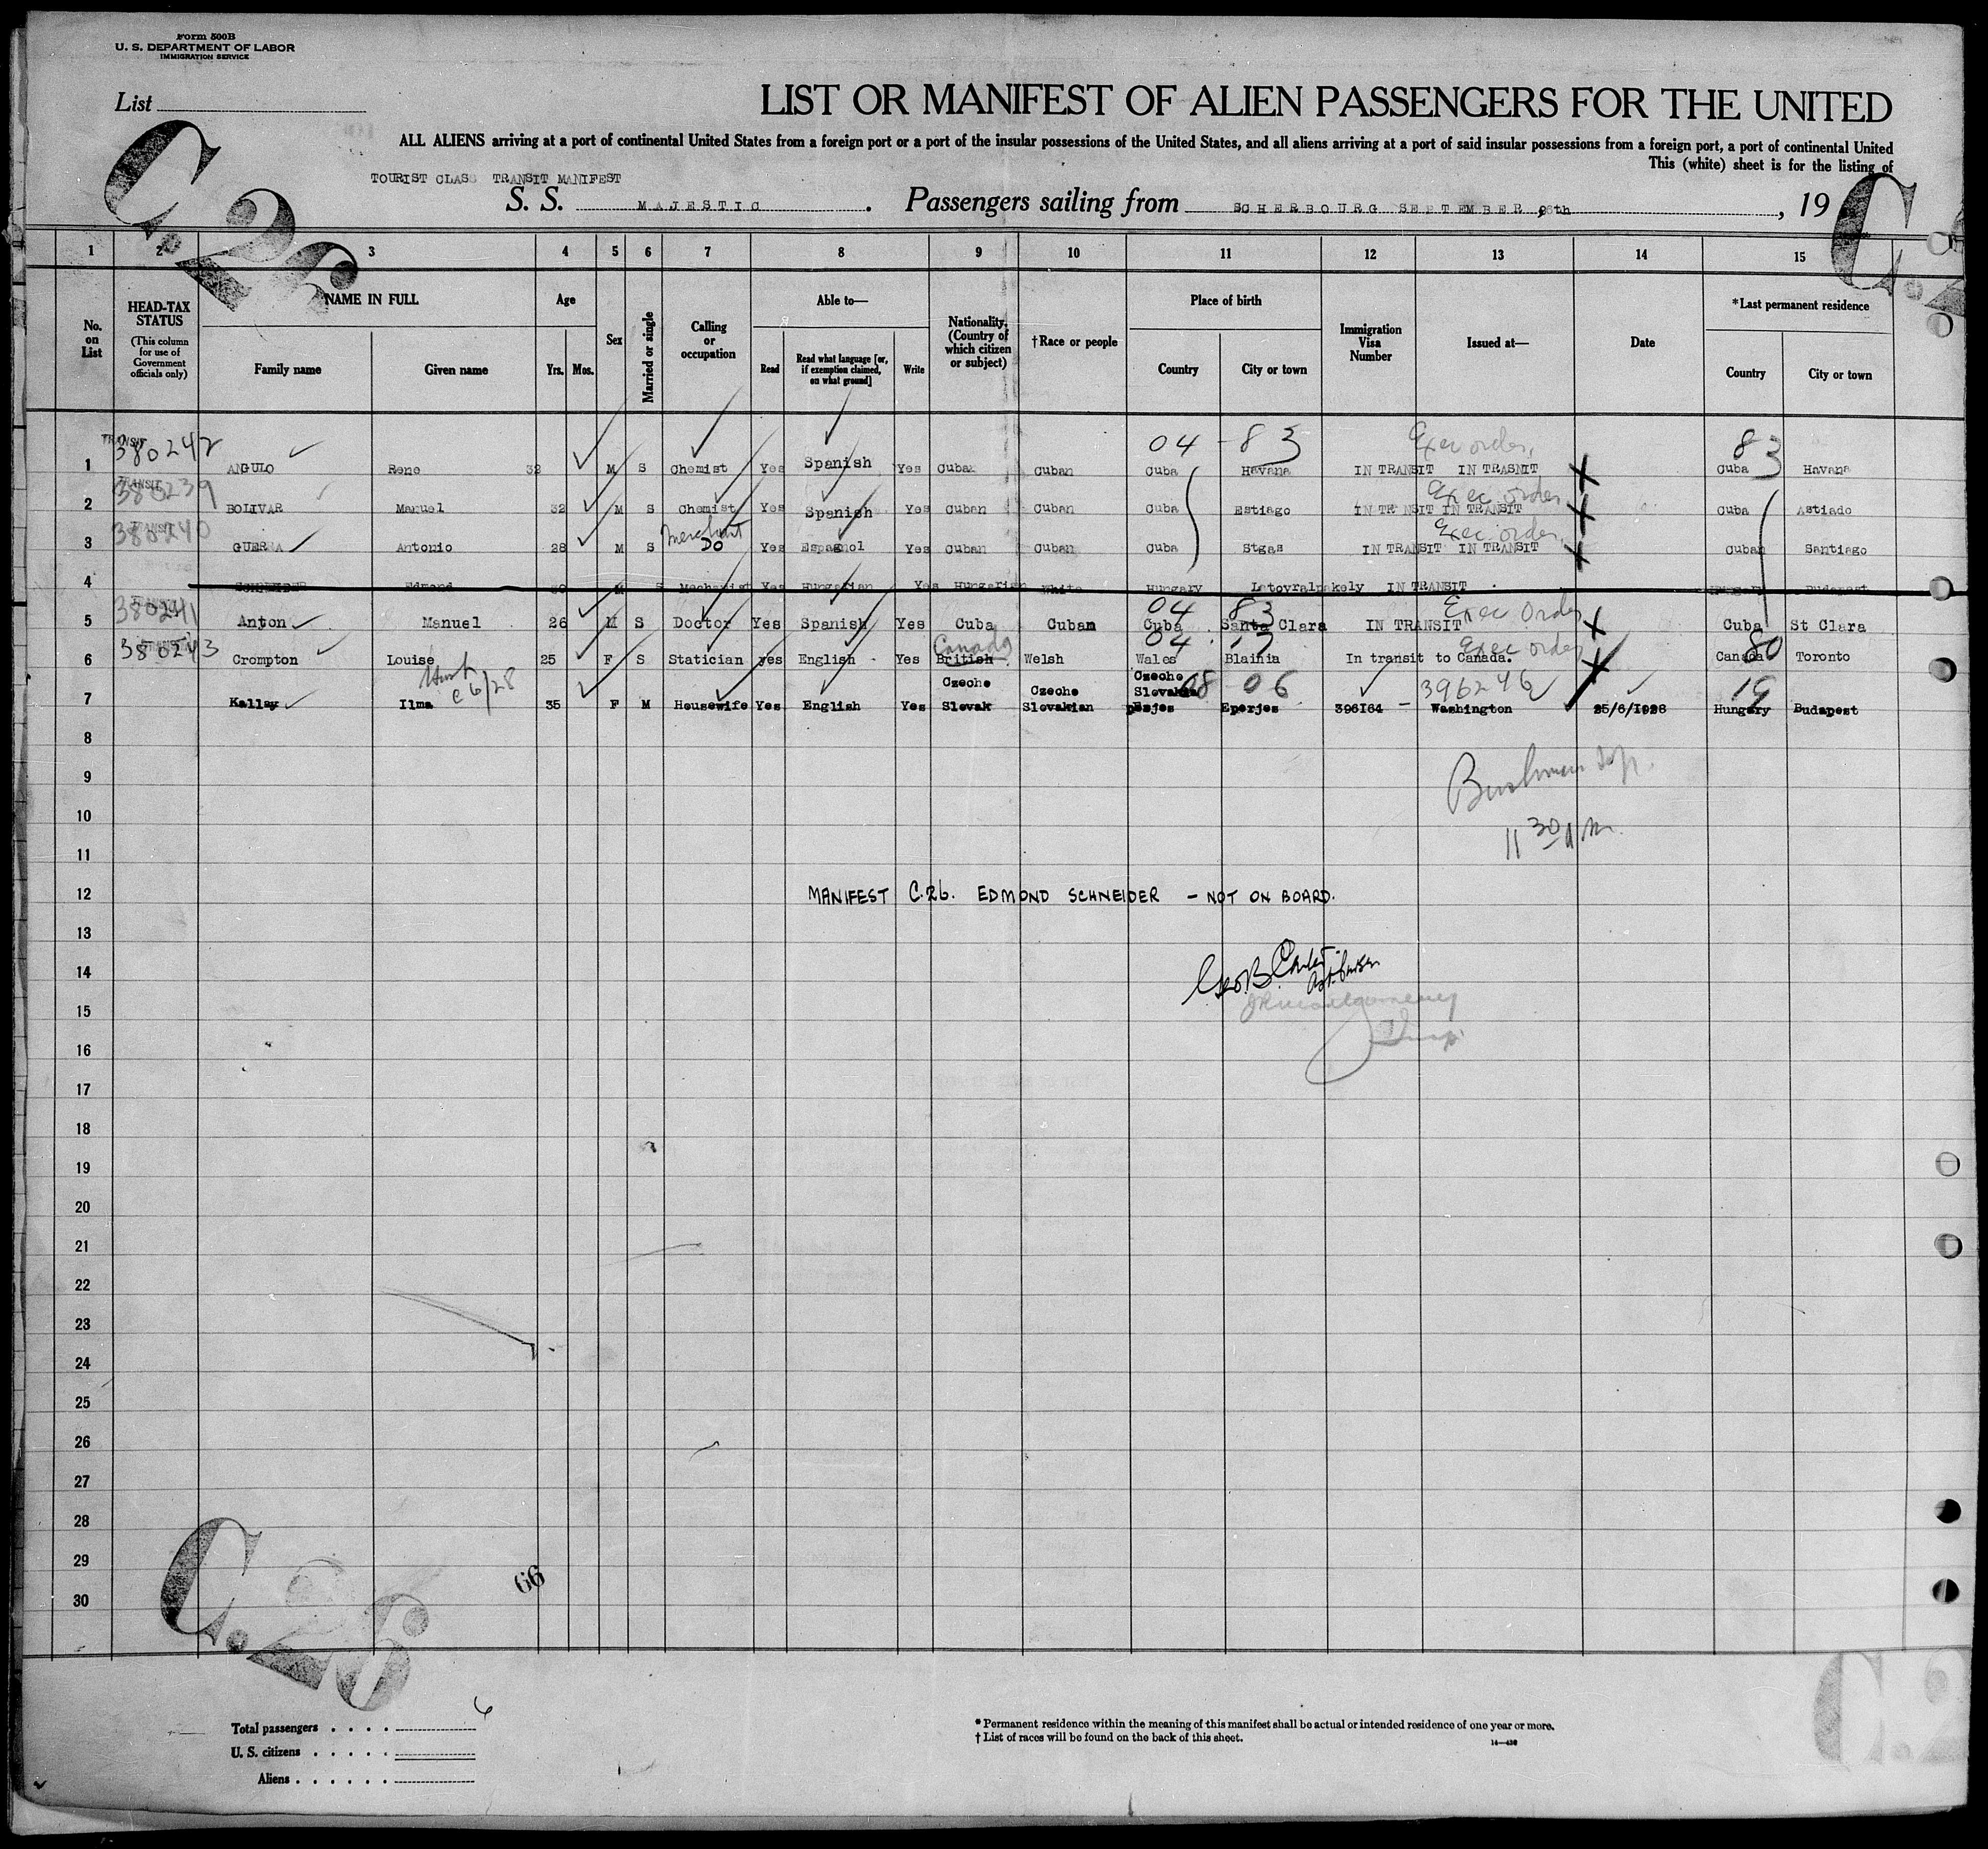 Form 500B
U. S. DEPARTMENT OF LABOR
IMMIGRATION SERVICE
List
LIST OR MANIFEST OF ALIEN PASSENGERS FOR THE UNITED
ALL ALIENS arriving at a port of continental United States from a foreign port or a port of the insular possessions of the United States, and all aliens arriving at a port of said insular possessions from a foreign port, a port of continental United
This (white) sheet is for the listing of
TOURIST CLASS TRANSIT MANIFEST
S. S. MAJESTIC. Passengers sailing from SCHERBOURG SEPTEMBER, 26th, 19
C.26
C.2
1 2 3 4 5 6 7 8 9 10 11 12 13 14 15
No. on List
HEAD-TAX STATUS (This column for use of Government officials only)
NAME IN FULL
Family name Given name
Age
Yrs. Mos.
Sex
Married or single
Calling or occupation
Able to—
Read Read what language [or, if exemption claimed, on what ground] Write
Nationality. (Country of which citizen or subject)
†Race or people
Place of birth
Country City or town
Immigration Visa Number
Issued at—
Date
*Last permanent residence
Country City or town
04 - 83 Exec order. 83
1 TRANSIT 380242 ANGULO Rene 32 M S Chemist Yes Spanish Yes Cuban Cuban Cuba Havana IN TRANSIT IN TRASNIT X Cuba Havana
Exec order
2 TRANSIT 380239 BOLIVAR Manuel 32 M S Chemist Yes Spanish Yes Cuban Cuban Cuba Estiago IN TR NSIT IN TRANSIT X Cuba Astiado
Merchant Exec order
3 TRANSIT 380240 GUERRA Antonio 28 M S DO Yes Espagnol Yes Cuban Cuban Cuba Stgas IN TRANSIT IN TRANSIT X Cuban Santiago
4 SCHNEIDER Edmond 30 M S Mechanist Yes Hungarian Yes Hungarian White Hungary IN TRANSIT Hungary Budapest
04 83 Exec Order
5 380241 Anton Manuel 26 M S Doctor Yes Spanish Yes Cuba Cuban Cuba Santa Clara IN TRANSIT X Cuba St Clara
Canada 04 17 Exec order 80
6 380243 Crompton Louise 25 F S Statician yes English Yes British Welsh Wales Blainia In transit to Canada. X Canada Toronto
c 6/28 Czecho Czecho Czecho Slovakia 08 - 06 396246 19
7 Kallay Ilma 35 F M Housewife Yes English Yes Slovak Slovakian Eperjes 396164 - Washington 25/6/1928 Hungary Budapest
8
9
10
11 30 AM.
11
12 MANIFEST C.26. EDMOND SCHNEIDER - NOT ON BOARD.
13
14 Geo. B.
15
16
17
18
19
20
21
22
23
24
25
26
27
28
29
30
C.26
66
C.2
Total passengers . . . . 6
U. S. citizens . . . . .
Aliens . . . . . .
* Permanent residence within the meaning of this manifest shall be actual or intended residence of one year or more.
† List of races will be found on the back of this sheet.
14—430